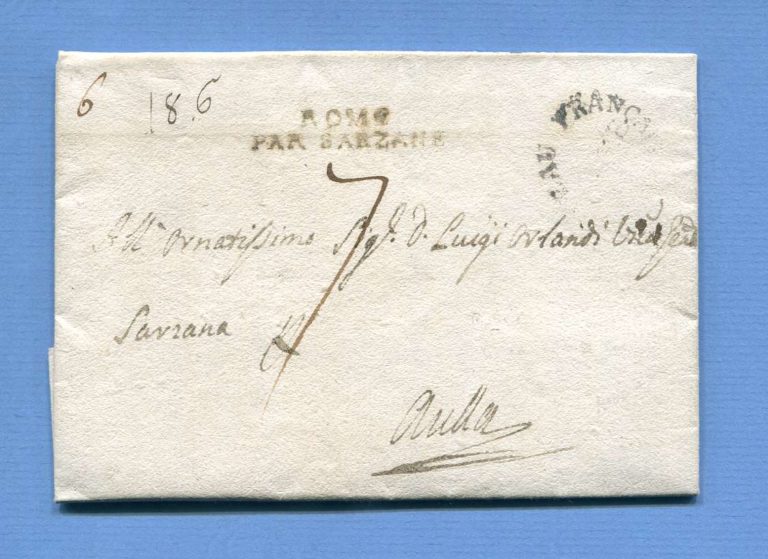 6
18.6
ROME
PAR SARZANE
FRANCA
7
All' Ornatissimo Sig.r D. Luigi Orlandi
Sarzana
Aulla